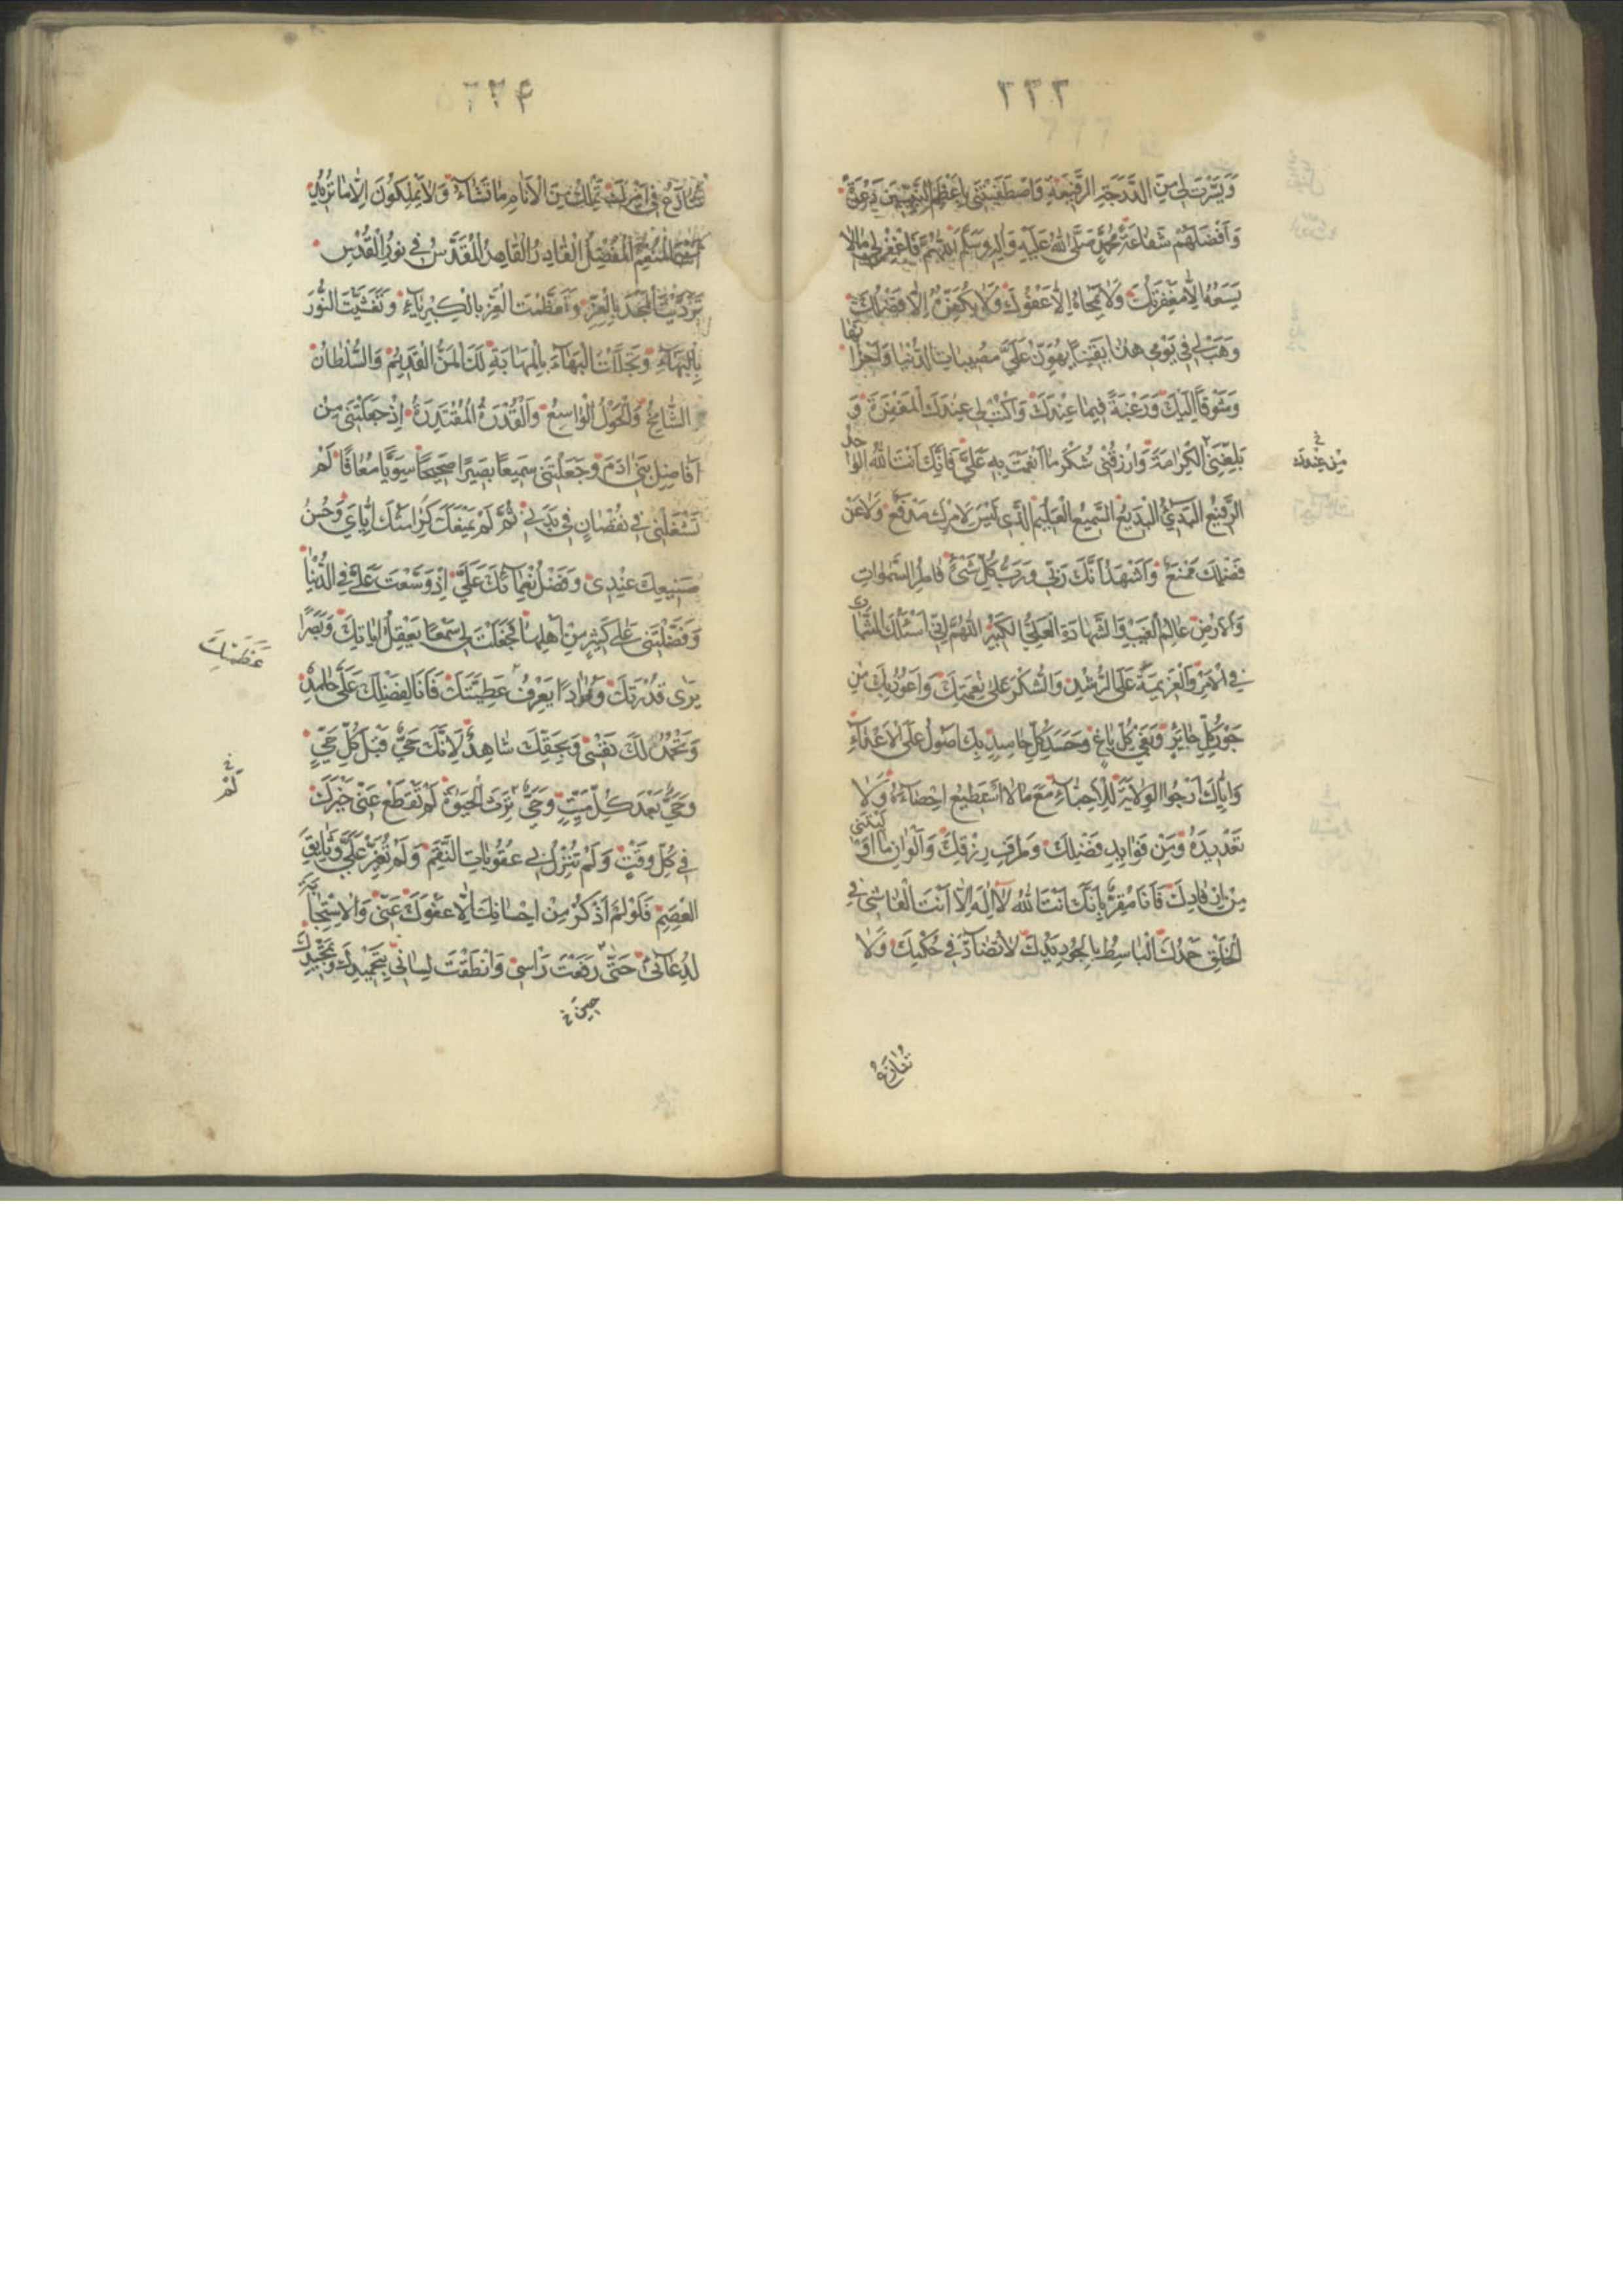 ۲۳۳
وَيَسَّرْتَ لِي مِنَ الدَّرَجَةِ الرَّفِيعَةِ وَاصْطَفَيْتَنِي بِأَعْظَمِ النَّبِيِّينَ دَعْوَةً
وَأَفْضَلِهِمْ شَفَاعَةً مُحَمَّدٍ صَلَّى اللهُ عَلَيْهِ وَآلِهِ وَسَلَّمَ اللّٰهُمَّ فَاغْفِرْ لِي مَا لَا
يَسَعُهُ إِلَّا مَغْفِرَتُكَ وَلَا يَمْحَاهُ إِلَّا عَفْوُكَ وَلَا يُكَفِّرُهُ إِلَّا فَضْلُكَ
وَهَبْ لِي فِي يَوْمِي هٰذَا يَقِينًا يُهَوِّنُ عَلَيَّ مُصِيبَاتِ الدُّنْيَا وَأَحْزَانَهَا
وَشَوْقًا إِلَيْكَ وَرَغْبَةً فِيمَا عِنْدَكَ وَاكْتُبْ لِي عِنْدَكَ الْمَغْفِرَةَ وَ
بَلِّغْنِي الْكَرَامَةَ وَارْزُقْنِي شُكْرَ مَا أَنْعَمْتَ بِهِ عَلَيَّ فَإِنَّكَ أَنْتَ اللهُ الْوَاحِدُ
الرَّفِيعُ الْبَدِيءُ الْبَدِيعُ السَّمِيعُ الْعَلِيمُ الَّذِي لَيْسَ لِأَمْرِكَ مَدْفَعٌ وَلَا عَنْ
فَضْلِكَ مَمْنَعٌ وَأَشْهَدُ أَنَّكَ رَبِّي وَرَبُّ كُلِّ شَيْءٍ فَاطِرُ السَّمٰوَاتِ
وَالْأَرْضِ عَالِمُ الْغَيْبِ وَالشَّهَادَةِ الْعَلِيُّ الْكَبِيرُ اللّٰهُمَّ إِنِّي أَسْئَلُكَ الثَّبَاتَ
فِي الْأَمْرِ وَالْعَزِيمَةَ عَلَى الرُّشْدِ وَالشُّكْرَ عَلَى نِعَمِكَ وَأَعُوذُ بِكَ مِنْ
جَوْرِ كُلِّ جَائِرٍ وَبَغْيِ كُلِّ بَاغٍ وَحَسَدِ كُلِّ حَاسِدٍ بِكَ أَصُولُ عَلَى الْأَعْدَاءِ
وَإِيَّاكَ أَرْجُوا الْوِلَايَةَ لِلْأَحِبَّاءِ مَعَ مَا لَا أَسْتَطِيعُ إِحْصَاءَهُ وَلَا
تَعْدِيدَهُ مِنْ فَوَائِدِ فَضْلِكَ وَطُرَفِ رِزْقِكَ وَأَلْوَانِ مَا أَوْلَيْتَنِي
مِنْ إِرْفَادِكَ فَأَنَا مُقِرٌّ بِأَنَّكَ أَنْتَ اللهُ لَا إِلٰهَ إِلَّا أَنْتَ الْفَاشِي فِي
الْخَلْقِ حَمْدُكَ الْبَاسِطُ بِالْجُودِ يَدَكَ لَا تُضَادُّ فِي حُكْمِكَ وَلَا
مِنْ عِنْدِكَ
تُنَازَعُ
۲۳۴
تُنَازَعُ فِي أَمْرِكَ تَمْلِكُ مِنَ الْأَنَامِ مَا تَشَاءُ وَلَا يَمْلِكُونَ إِلَّا مَا تُرِيدُ
أَنْتَ الْمُنْعِمُ الْمُفْضِلُ الْقَادِرُ الْقَاهِرُ الْمُقَدَّسُ فِي نُورِ الْقُدْسِ
تَرَدَّيْتَ الْمَجْدَ بِالْعِزِّ وَتَعَظَّمْتَ الْعِزَّ بِالْكِبْرِيَاءِ وَتَغَشَّيْتَ النُّورَ
بِالْبَهَاءِ وَتَجَلَّلْتَ الْبَهَاءَ بِالْمَهَابَةِ لَكَ الْمَنُّ الْقَدِيمُ وَالسُّلْطَانُ
الشَّامِخُ وَالْحَوْلُ الْوَاسِعُ وَالْقُدْرَةُ الْمُقْتَدِرَةُ إِذْ جَعَلْتَنِي مِنْ
أَفَاضِلِ بَنِي آدَمَ وَجَعَلْتَنِي سَمِيعًا بَصِيرًا صَحِيحًا سَوِيًّا مُعَافًا لَمْ
تَشْغَلْنِي فِي نُقْصَانٍ فِي بَدَنِي ثُمَّ لَمْ يَمْنَعْكَ كَرَامَتُكَ إِيَّايَ وَحُسْنُ
صَنِيعِكَ عِنْدِي وَفَضْلُ نَعْمَائِكَ عَلَيَّ إِذْ وَسَّعْتَ عَلَيَّ فِي الدُّنْيَا
وَفَضَّلْتَنِي عَلَى كَثِيرٍ مِنْ أَهْلِهَا فَجَعَلْتَ لِي سَمْعًا يَعْقِلُ آيَاتِكَ وَبَصَرًا
يَرَى قُدْرَتَكَ وَفُؤَادًا يَعْرِفُ عَطِيَّتَكَ فَأَنَا لِفَضْلِكَ عَلَيَّ حَامِدٌ
وَتَحْمَدُ لَكَ نَفْسِي وَبِحَقِّكَ شَاهِدٌ لِأَنَّكَ حَيٌّ قَبْلَ كُلِّ حَيٍّ
وَحَيٌّ بَعْدَ كُلِّ مَيِّتٍ وَحَيٌّ تَرِثُ الْحَيٰوةَ لَمْ تَقْطَعْ عَنِّي خَيْرَكَ
فِي كُلِّ وَقْتٍ وَلَمْ تُنْزِلْ بِي عُقُوبَاتِ النِّقَمِ وَلَمْ تُغَيِّرْ عَلَيَّ وَثَائِقَ
الْعِصَمِ فَلَوْ لَمْ أَذْكُرْ مِنْ إِحْسَانِكَ إِلَّا عَفْوَكَ عَنِّي وَالْاِسْتِجَابَةَ
لِدُعَائِي حَتَّى رَفَعْتُ رَأْسِي وَانْطَقْتَ لِسَانِي بِتَحْمِيدِكَ وَتَمْجِيدِكَ
عَظَمَتَكَ
لَمْ
حِينَ